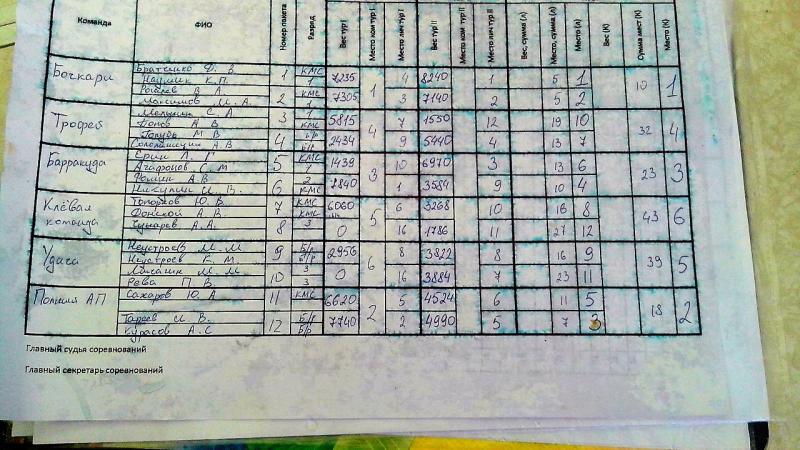 Команда ФИО Номер пакета Разряд Вес тур I Место ком тур I Место лич тур I Вес тур II Место ком тур II Место лич тур II Вес, сумма (л) Место, сумма (л) Место (л) Вес (К) Сумма мест (К) Место (К)
Бочкари Братенко Ф. В. 1 КМС 7235 1 4 8240 1 5 1 10 1
К.П. 1
В А. 2 КМС 7305 3 7140 2 5 2
Максимов И. А. 1
Трофей С А 3 1 5815 4 7 1550 12 19 10 32 4
Попов А В КМС
Голубь М В 4 б/р 2434 9 5440 4 13 7
б/р
Барракуда Ерин Л. Г 5 КМС 1439 3 10 6970 3 13 6 23 3
Агафонов С М
Фомин А.В 6 2 7840 1 3584 9 10 4
Никулин И. В. КМС
Клёвая команда Топорков Ю. В 7 КМС 6060 5 6 3268 10 16 8 43 6
Фонской А. В. КМС
Чунарев А.А. 8 3 0 16 1786 11 27 12
Удача Неустроев М. М 9 Б/р 2956 6 8 3822 8 16 9 39 5
Неустроев К. М б/р
М М 10 3 0 16 3884 7 23 11
Рева П В. 3
Полиия АП Сахаров Ю. А 11 КМС 6620 2 5 4524 6 11 5 18 2
Тареев И В. 12 Б/р 7740 2 4990 5 7 3
Курасов А.С Б/р
Главный судья соревнований
Главный секретарь соревнований